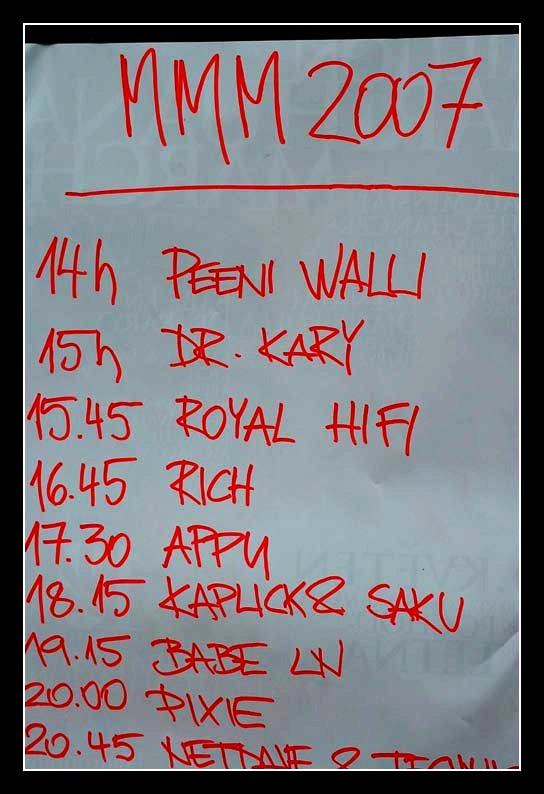 MMM 2007
14h PEENI WALLI
15h DR. KARY
15.45 ROYAL HIFI
16.45 RICH
17.30 APPU
18.15 KAPLICK & SAKU
19.15 BABE LN
20.00 PIXIE
20.45 &
KVĚTEN
LETNÁ